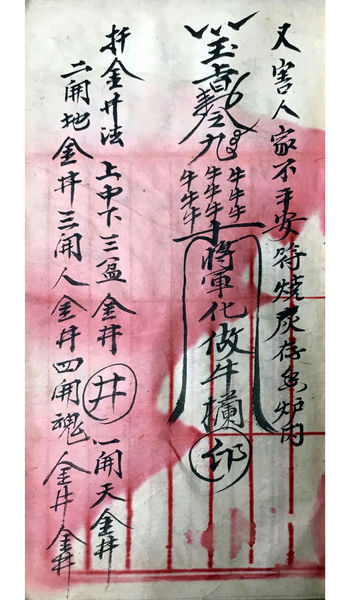 又害人家不平安符燒灰存急炉内
牛牛牛牛牛牛牛牛牛
將軍化做牛欄
印
扦金井法 上中下三盆金井 井 一開天金井
二開地金井三開人金井四開魂人金井金井